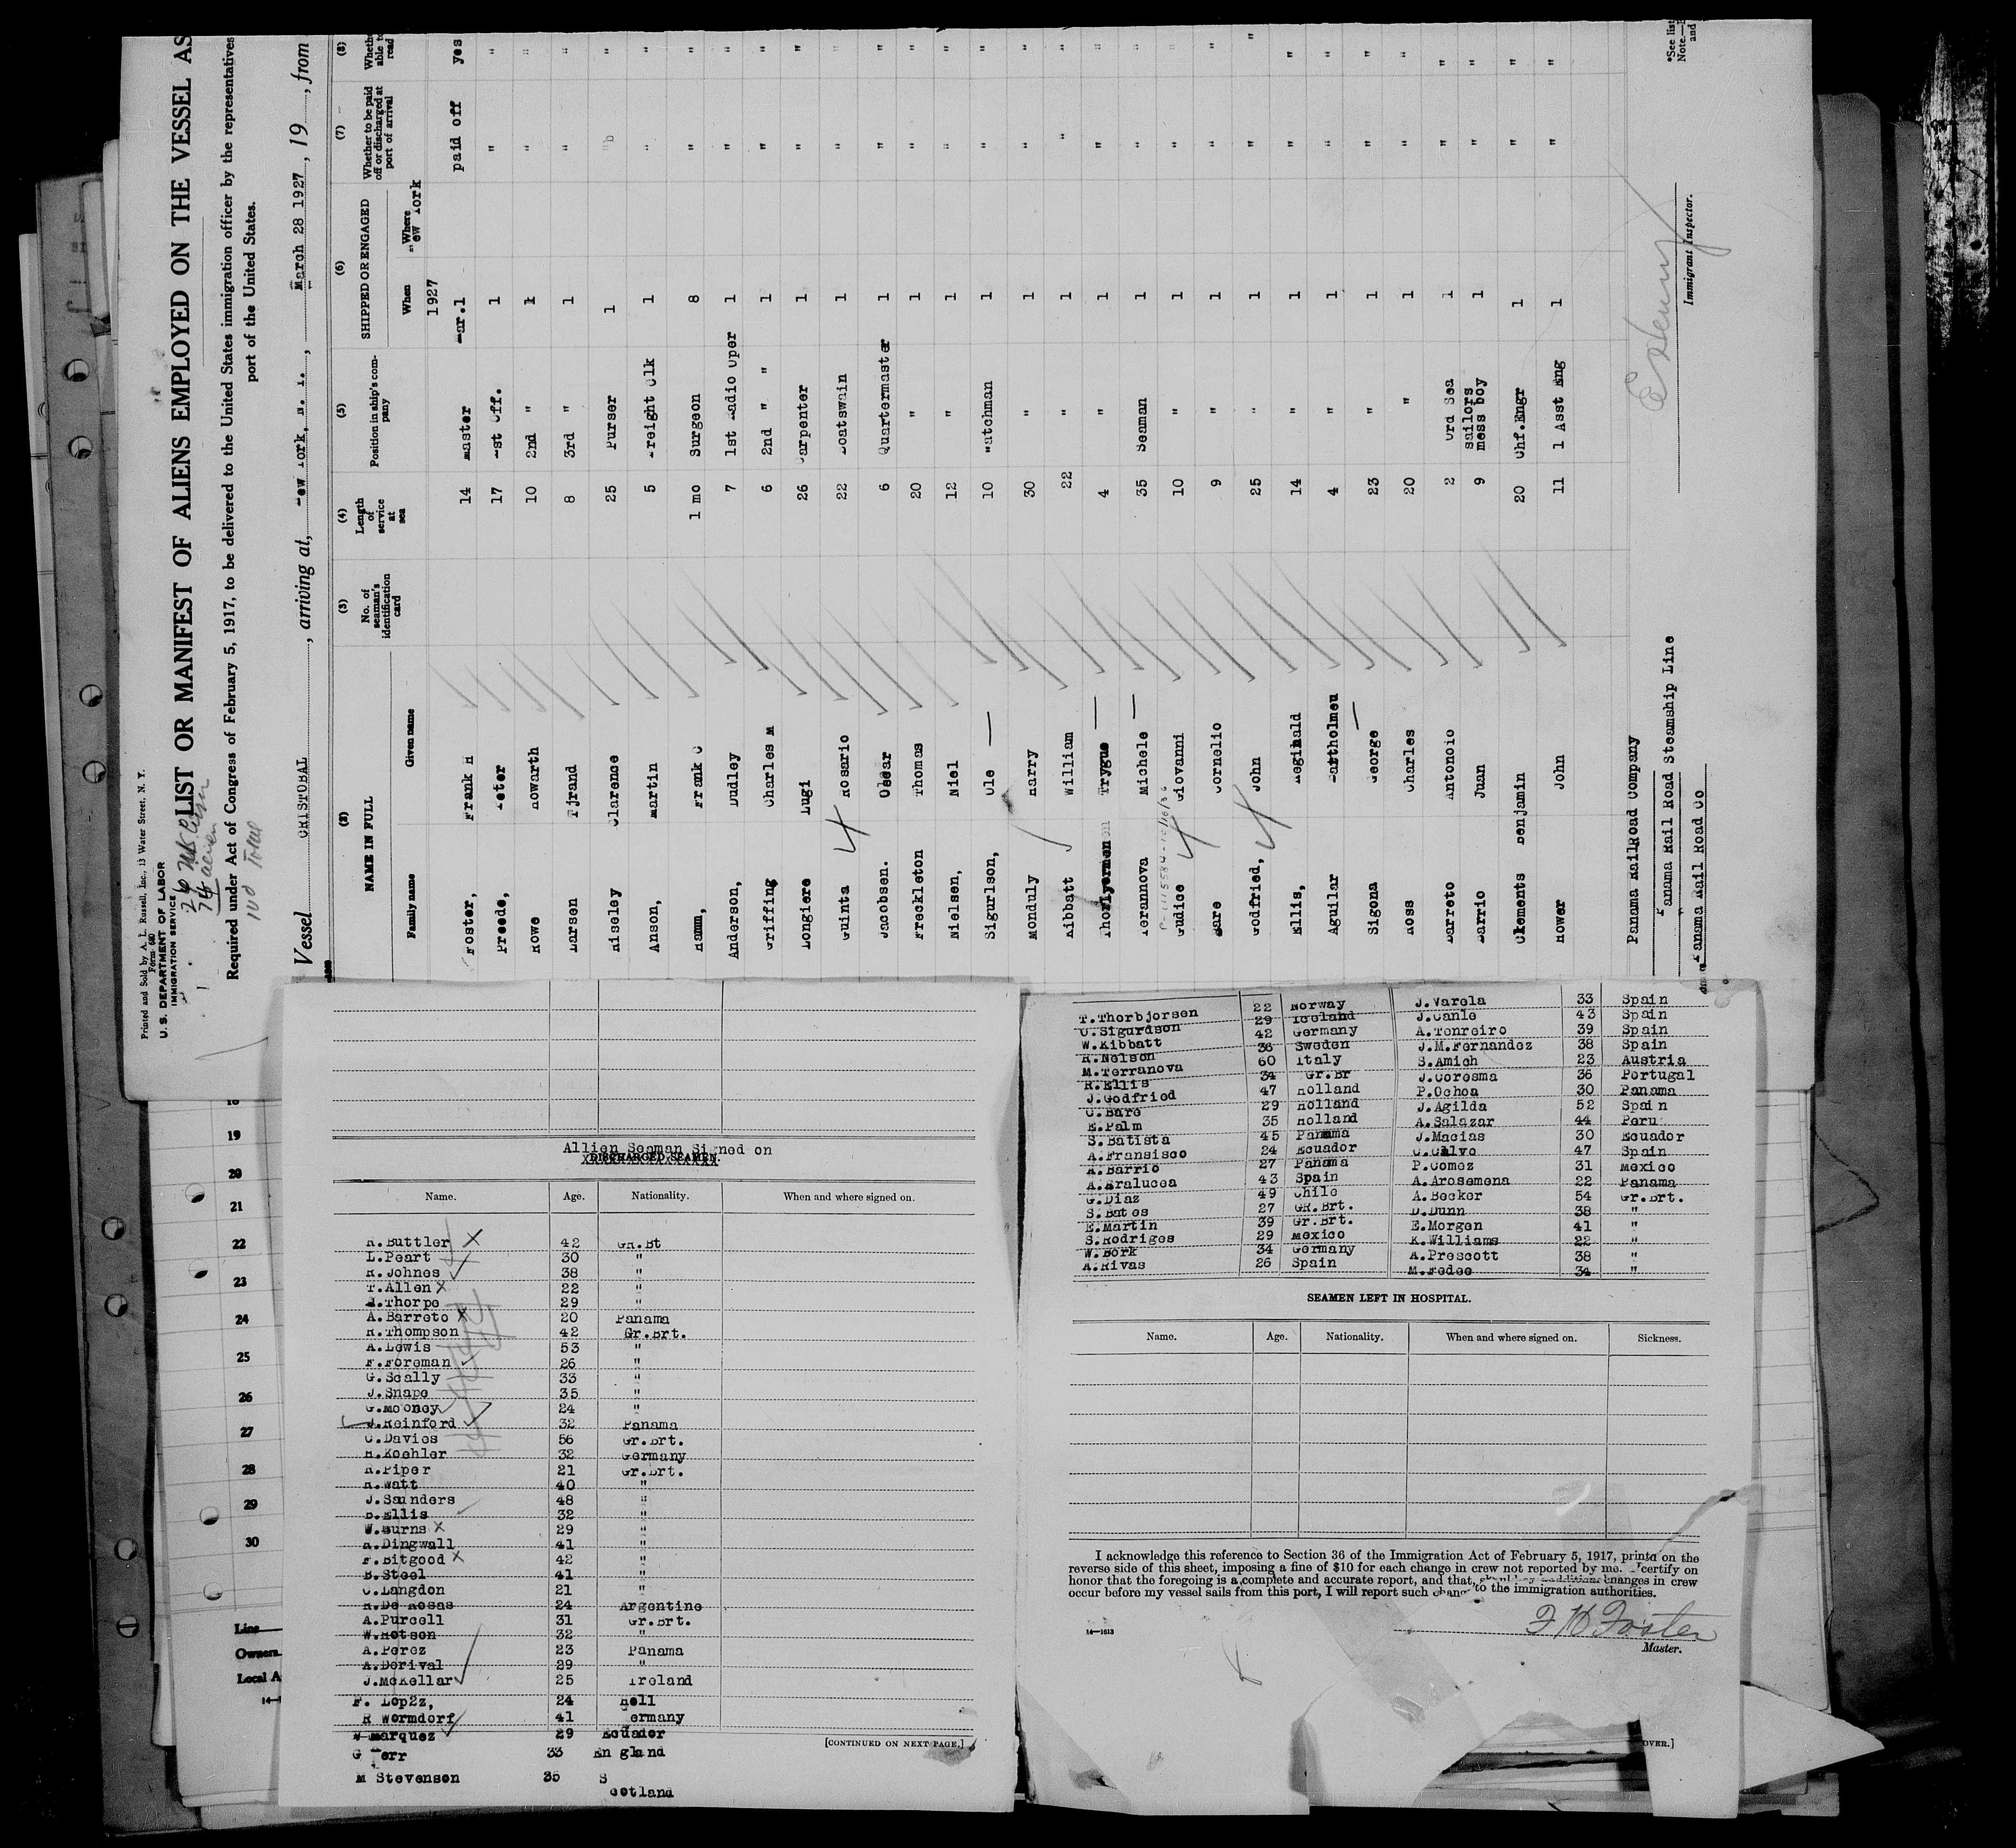 Printed and Sold by A. L. Russell, Inc., 13 Water Street, N. Y.
Form 680
U. S. DEPARTMENT OF LABOR
IMMIGRATION SERVICE
26
76
LIST OR MANIFEST OF ALIENS EMPLOYED ON THE VESSEL AS
Required under Act of Congress of February 5, 1917, to be delivered to the United States immigration officer by the representatives
port of the United States.
Vessel CRISTOBAL, arriving at, ew ork, N. Y., March 28 1927, 19, from
(2) (3) (4) (5) (6) (7) (8)
NAME IN FULL
Family name Given name
No. of seaman's identification card
Length of service at sea
Position in ship's company
SHIPPED OR ENGAGED
When Where
Whether to be paid off or discharged at port of arrival
Whether able to read
1927 ew York
Foster, Frank H 14 Master ar.1 paid off yes
Preede, eter 17 st Off. 1 " "
Rowe Howarth 10 2nd " 1 " "
Larsen Tjrand 8 3rd " 1 " "
Riseley Clarence 25 Purser 1 " "
Anson, Martin 5 reight Clk 1 " "
Hamm, Frank C 1 mo Surgeon 8 " "
Anderson, Dudley 7 1st adio Oper 1 " "
Griffing Charles M 6 2nd " " 1 " "
Longiere Lugi 26 Carpenter 1 " "
Guinta Rosario 22 Boatswain 1 " "
Jacobsen. Oscar 6 Quartermaster 1 " "
Freckleton Thomas 20 " 1 " "
Nielsen, Niel 12 " 1 " "
Sigurlson, Ole 10 watchman 1 " "
Monduly Harry 30 " 1 " "
Kibbatt William 22 " 1 " "
Trygue 4 " 1 " "
Terannova Michele 35 Seaman 1 " "
Gudice Giovanni 10 " 1 " "
Bare Cornelio 9 " 1 " "
Godfried, John 25 " 1 " "
Ellis, Reginald 14 " 1 " "
Aguilar Bartholmeu 4 " 1 " "
Sigona George 23 " 1 " "
Ross Charles 20 " 1 " "
Barreto Antonoio 2 Ord Sea 1 " "
Barrio Juan 9 sailors mess boy 1 " "
Clements Benjamin 20 Chf.Engr 1 " "
Rower John 11 1 Asst Eng 1 " "
Panama Railroad Company
anama Rail Road Steamship Line
anama Rail Road Co
Immigrant Inspector.
*See list
Note.—
and
19
20
21
22
23
24
25
26
27
28
29
30
Line
Owners
Local A
Allien Seaman Signed on
DISCHARGED SEAMEN.
Name. Age. Nationality. When and where signed on.
R.Buttler 42 Gr.Bt
L.Peart 30 "
R.Johnes 38 "
T.Allen 22 "
H.Thorpe 29 "
A.Barreto 20 Panama
R.Thompson 42 Gr.Brt.
A.Lewis 53 "
F.Foreman 26 "
G.Scally 33 "
J.Snape 35 "
G.Mooney 24 "
J.Reinford 32 Panama
C.Davies 56 Gr.Brt.
H.Koehler 32 Germany
R.Piper 21 Gr.Brt.
R.Watt 40 "
J.Saunders 48 "
B.Ellis 32 "
W.Burns 29 "
R.Dingwall 41 "
F.Bitgood 42 "
B.Steel 41 "
C.Langdon 21 "
R.De Rosas 24 Argentine
A.Purcell 31 Gr.Brt.
W.Hotson 32 "
A.Perez 23 Panama
A.Derival 29 "
J.McKellar 25 Ireland
F. Lop2z, 24 hell
R Wormdorf 41 Germany
W Marquez 29 Ecuador
G err 33 England
M Stevenson 35 Scotland
[CONTINUED ON NEXT PAGE.]
T.Thorbjorsen 22 Norway J.Varela 33 Spain
O.Sigurdson 29 Iceland J.Canle 43 Spain
W.Kibbatt 42 Germany A.Tenreiro 39 Spain
R.Nelson 36 Sweden J.M.Fernandez 38 Spain
M.Terranova 60 Italy S.Amich 23 Austria
R.Ellis 34 Gr.Br J.Coresma 36 Portugal
J.Godfried 47 Holland P.Ochoa 30 Panama
C.Bare 29 Holland J.Agilda 52 Spain
E.Palm 35 Holland A.Salazar 44 Peru
S.Batista 45 Panama J.Macias 30 Ecuador
A.Fransisco 24 Ecuador C.Calvo 47 Spain
A.Barrio 27 Panama P.Gomez 31 Mexico
A.Aralucea 43 Spain A.Arosemena 22 Panama
G.Diaz 49 Chile A.Becker 54 Gr.Brt.
S.Bates 27 GR.Brt. D.Dunn 38 "
E.Martin 39 Gr.Brt. E.Morgen 41 "
S.Rodriges 29 Mexico K.Williams 22 "
W.Bork 34 Germany A.Prescott 38 "
A.Rivas 26 Spain M.Fedee 34 "
SEAMEN LEFT IN HOSPITAL.
Name. Age. Nationality. When and where signed on. Sickness.
I acknowledge this reference to Section 36 of the Immigration Act of February 5, 1917, printed on the
reverse side of this sheet, imposing a fine of $10 for each change in crew not reported by me. I certify on
honor that the foregoing is a complete and accurate report, and that, should any additional changes in crew
occur before my vessel sails from this port, I will report such change to the immigration authorities.
14—1613
F H Foster
Master.
OVER.]